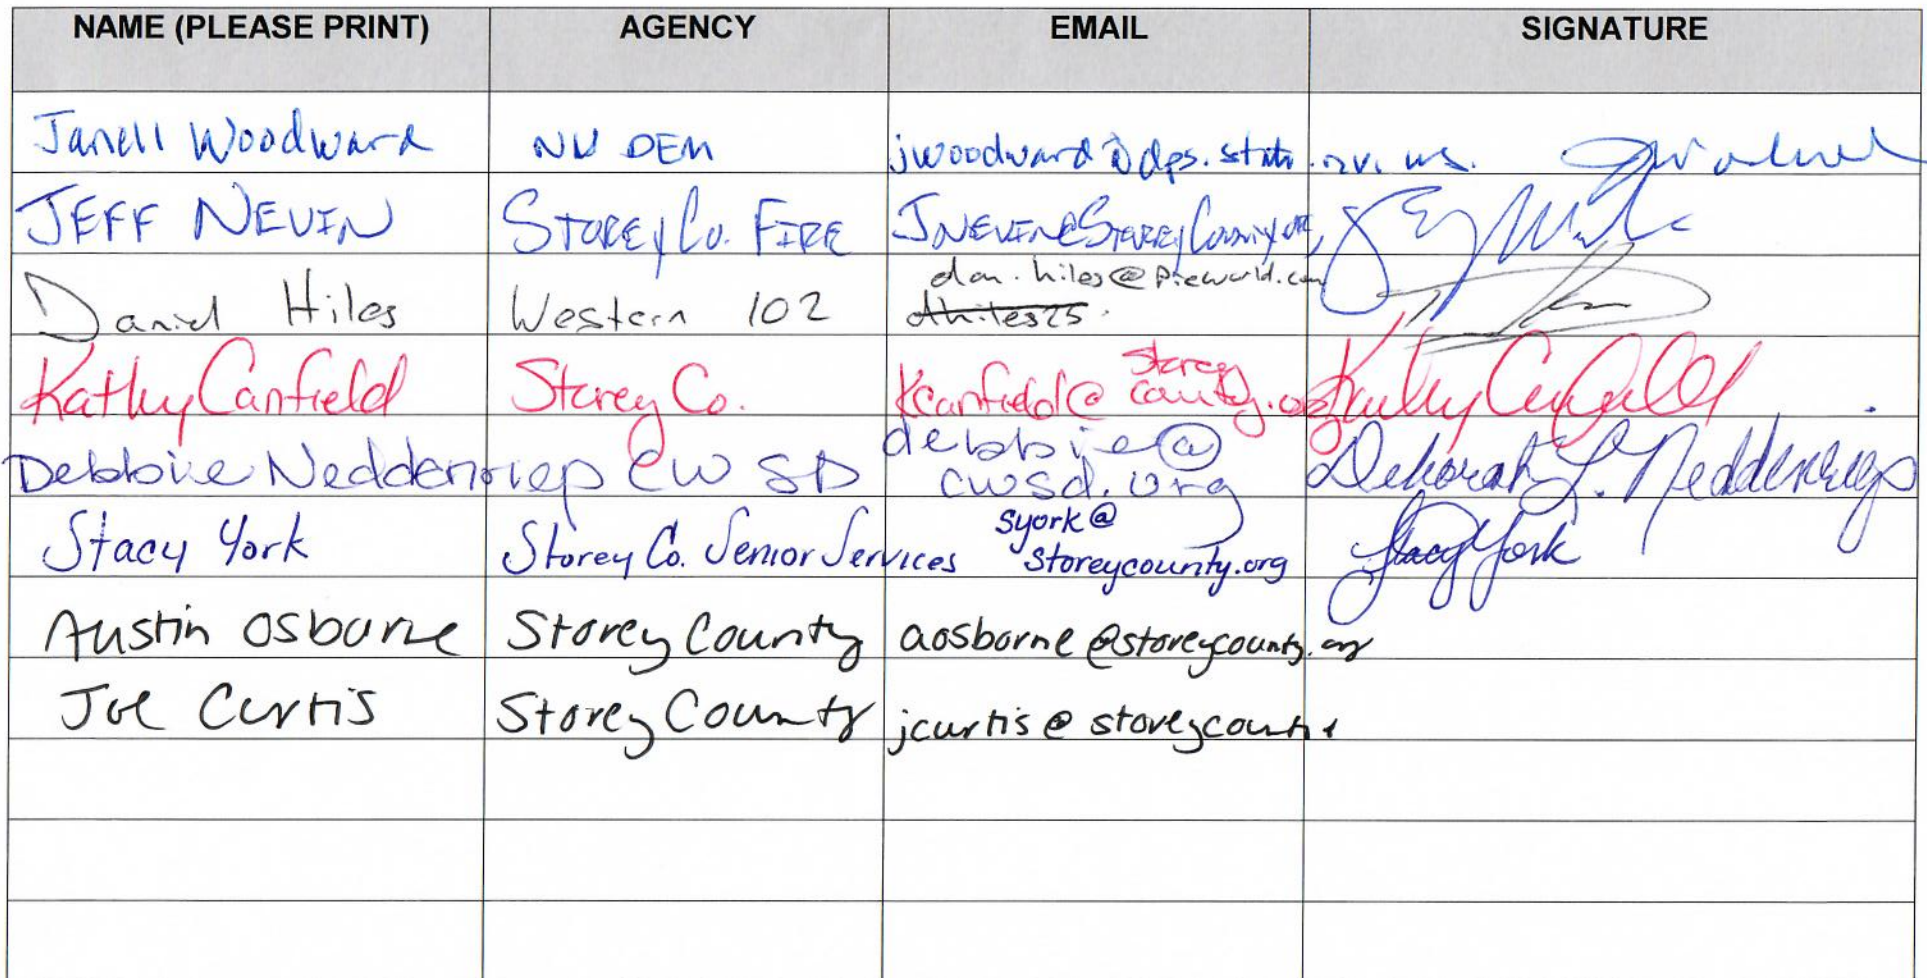 NAME (PLEASE PRINT) AGENCY EMAIL SIGNATURE
Janell Woodward NV DEM jwoodward@dps.state.nv.us.
JEFF NEVIN STOREY CO. FIRE JNEVIN@STOREYCOUNTY.ORG
dan.hiles@pieworld.com
Daniel Hiles Western 102 dhiles25
Storey
Kathy Canfield Storey Co. Kcanfield@ County.org Kathy Canfield
debbie@
Debbie Neddenriep CWSD cwsd.org Deborah L. Neddenriep
syork@
Stacy York Storey Co. Senior Services storeycounty.org Stacy York
Austin Osborne Storey County aosborne@storeycounty.org
Joe Curtis Storey County jcurtis@